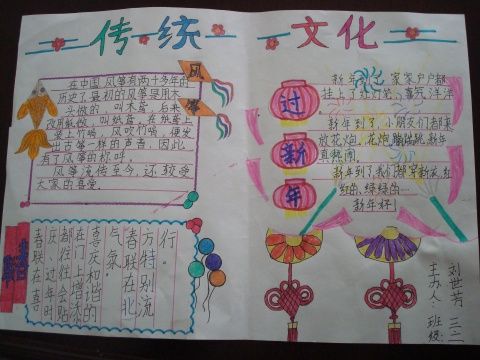 传统 文化
风筝
在中国,风筝有两千多年的
历史了最初的风筝是用木
头做的,叫木鸢,后来
改用纸做,叫纸鸢,在纸鸢上
装上竹哨,风吹竹哨,便发
出古筝一样的声音,因此
有了风筝的称呼。
风筝流传至今,还较受
大家的喜爱。
过新年
新年到了,家家户户都
挂上了红灯笼,喜气洋洋
新年到了,小朋友们都来
放花炮,花炮蹦蹦跳,新年
真热闹。
新年到了,我们都穿新衣,红
红的,绿绿的…
新年杯
春联
春联在喜
庆、过年时
都往往会贴
在门上增添
喜庆和谐的
气氛。
春联在北
方特别流
行。
主办人:刘世芳
班级:三二